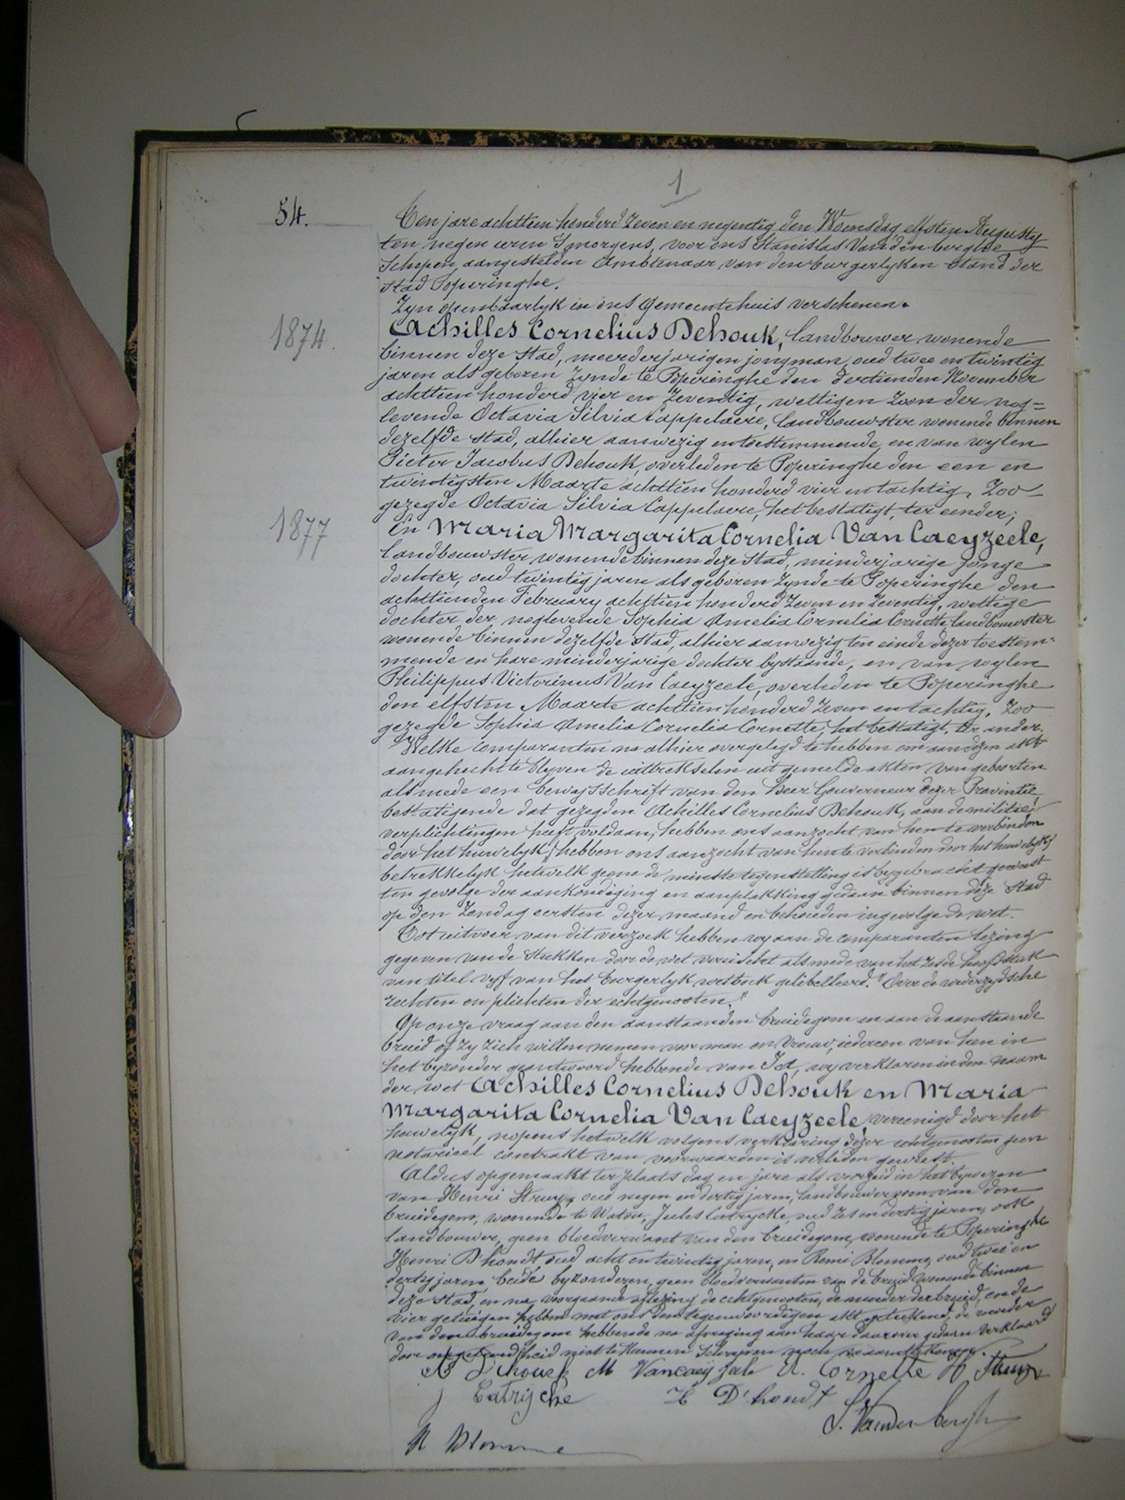 1
54.
Ten jare achttien honderd zeven en negentig den Woensdag elfsten Augusty
ten negen uren s'morgens, voor ons Stanislas Vanden berghe
Schepen aangestelden Ambtenaar van den burgerlyken stand der
stad Poperinghe.
Zyn openbaarlyk in ons Gemeentehuis verschenen.
1874.
Achilles Cornelius Dehouk, landbouwer wonende
binnen deze stad, meerderjarigen jongman, oud twee en twintig
jaren als geboren zynde te Poperinghe den dertienden November
achttien honderd vier en zeventig, wettigen zoon der nog=
levende Octavia Silvia Cappelaere, landbouwster wonende binnen
dezelfde stad, alhier aanwezig en toestemmende, en van wylen
Pieter Jacobus Dehouk, overleden te Poperinghe den een en
twintigsten Maarte achttien honderd vier en tachtig, Zoo
gezegde Octavia Silvia Cappelaere, het bestatigt, ter eender;
1877
En Maria Margarita Cornelia Van Caeyzeele,
landbouwster, wonende binnen deze stad, minderjarige jonge
dochter, oud twintig jaren als geboren zynde te Poperinghe den
achttienden February achttien honderd zeven en zeventig, wettige
dochter der noglevende Sophia Amelia Cornelia Cornette, landbouwster
wonende binnen dezelfde stad, alhier aanwezig ten einde dezer toestem-
mende en hare minderjarige dochter bystaande, en van wylen
Philippus Victorinus Van Caeyzeele, overleden te Poperinghe
den elfsten Maarte achttien honderd zeven en tachtig, Zoo
gezegde Sophia Amelia Cornelia Cornette, het bestatigt, ter ander.
Welke comparanten na alhier overgelegd te hebben om aan dezen akt
aangehecht te blyven de uittrekselen uit gemelde akten van geboorten
alsmede een bewysschrift van den Heer Gouverneur dezer Provintie,
bestatigende dat gezegden Achilles Cornelius Dehouk, aan de militaire
verplichtingen heeft voldaan; hebben ons aanzocht van hen te verbinden
door het huwelyk, hebben ons aanzocht van hun te verbinden door het huwelyk
betrekkelyk hetwelk geene de minste tegenstelling is bygebracht geweest
ten gevolge der aankondiging en aanplakking gedaan binnen deze Stad
op den Zondag eersten dezer maand en behouden ingevolge de wet.
Tot uitvoer van dit verzoek hebben wy aan de comparanten lezing
gegeven van de stukken door de wet vereischt alsmede van het zesde hoofdstuk
van titel vyf van het burgerlyk wetboek getibelleerd. "Over de wederzydsche
rechten en plichten der echtgenooten."
Op onze vraag aan den aanstaanden bruidegom en aan de aanstaande
bruid of zy zich willen nemen voor man en vrouw, iedereen van hen in
het byzonder geantwoord hebbende van Ja, wy verklaren in den naam
der wet Achilles Cornelius Dehouk en Maria
Margarita Cornelia Van Caeyzeele, vereenigd door het
huwelyk, nopens hetwelk volgens verklaring dezer echtgenooten geen
notarieel contrakt van voorwaarden is verleden geweest.
Aldus opgemaakt ter plaats dag en jare als voorzeid in het bywezen
van Henri Struye oud negen en dertig jaren, landbouwer oom van den
bruidegom, wonende te Watou, Jules Catrycke, oud zes en dertig jaren, ook
landbouwer, geen bloedverwant van den bruidegom, wonende te Poperinghe
Henri D'hondt oud acht en twintig jaren, en Remi Blomme, oud twee en
dertig jaren beide byzonderen, geen bloedverwanten van de bruid wonende binnen
deze stad, en na voorgaande aflezing de echtgenooten, de moeder der bruid, en de
vier getuigen hebben met ons den tegenwoordigen akt geteekend, de moeder
van den bruidegom hebbende na afvraging aan haar daarover gedaan verklaard
door ongeleerdheid niet te kunnen schryven noch naamteekenen.
A Dehouck M Vancaeyzeele A. Cornette H. Struye
J Catrycke H D'hondt
S. Vandenberghe
R Blomme